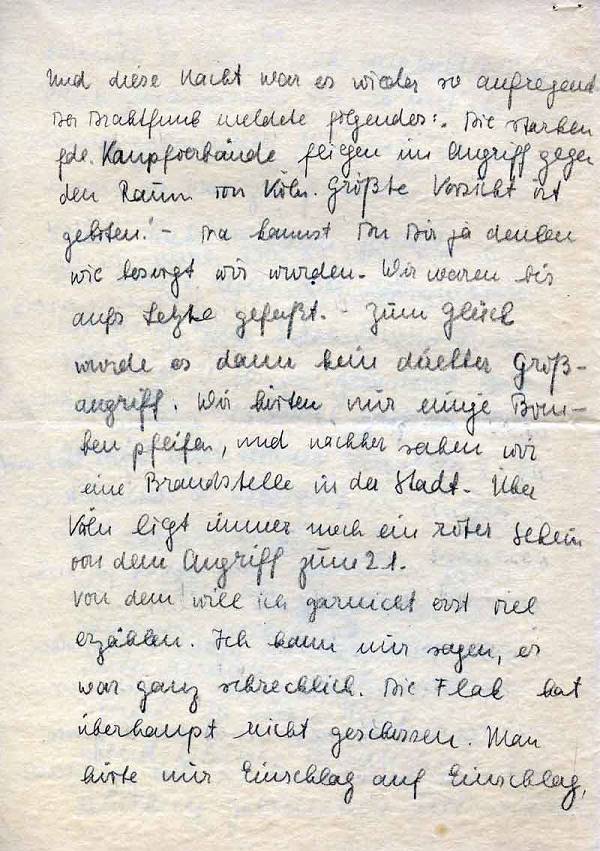 Und diese Nacht war es wieder so aufregend
Der Drahtfunk meldete folgendes: "Die starken
fdl. Kampfverbände fliegen im Angriff gegen
den Raum von Köln. Größte Vorsicht ist
geboten." - Da kannst Du Dir ja denken
wie besorgt wir wurden. Wir waren bis
aufs Letzte gefaßt. - Zum Glück
wurde es dann kein direkter Groß-
angriff. Wir hörten nur einige Bom-
ben pfeifen, und nachher sahen wir
eine Brandstelle in der Stadt. Über
Köln ligt immer noch ein roter Schein
von dem Angriff zum 21.
Von dem will ich garnicht erst viel
erzählen. Ich kann nur sagen, es
war ganz schrecklich. Die Flak hat
überhaupt nicht geschossen. Man
hörte nur Einschlag auf Einschlag,